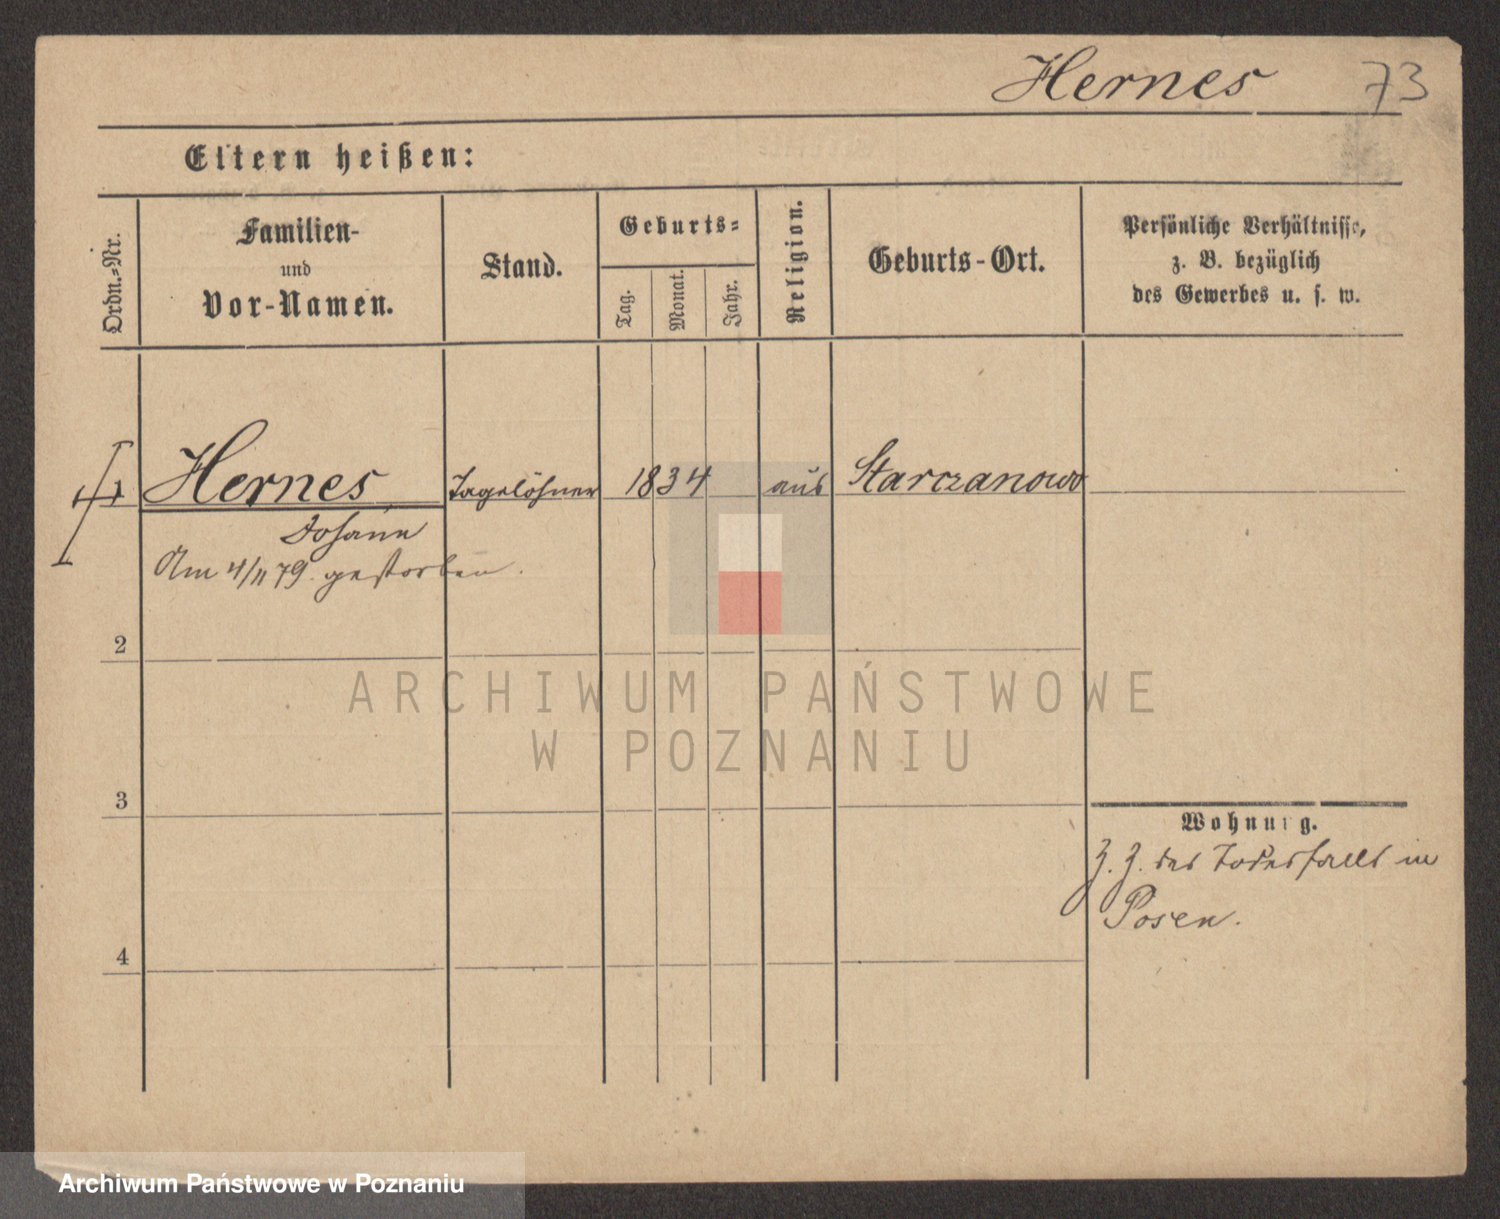 Hernes 73
Eltern heißen:
Ordn.-Nr.
Familien-
und
Vor-Namen.
Stand.
Geburts-
Tag.
Monat.
Jahr.
Religion.
Geburts-Ort.
Persönliche Verhältnisse,
z. B. bezüglich
des Gewerbes u. s. w.
1 Hernes Tagelöhner 1834 aus Starczanowo
Johann
Am 4/11 79. gestorben.
2
3
4
Wohnung.
Z. Z. des Todesfalls in
Posen.
ARCHIWUM PAŃSTWOWE
W POZNANIU
Archiwum Państwowe w Poznaniu